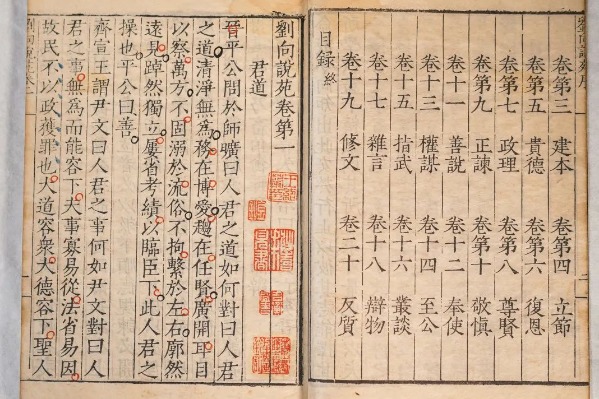 卷第三 建本 卷第四 立節
卷第五 貴德 卷第六 復恩
卷第七 政理 卷第八 尊賢
卷第九 正諫 卷第十 敬愼
卷十一 善說 卷十二 奉使
卷十三 權謀 卷十四 至公
卷十五 指武 卷十六 叢談
卷十七 雜言 卷十八 辯物
卷十九 修文 卷二十 反質
目録終
劉向說苑卷第一
君道
晉平公問於師曠曰人君之道如何對曰人君
之道清淨無爲務在博愛趨在任賢廣開耳目
以察萬方不固溺於流俗不拘繫於左右廓然
遠見踔然獨立屢省考績以臨臣下此人君之
操也平公曰善
齊宣王謂尹文曰人君之事何如尹文對曰人
君之事無爲而能容下夫事寡易從法省易因
故民不以政獲罪也大道容衆大德容下聖人